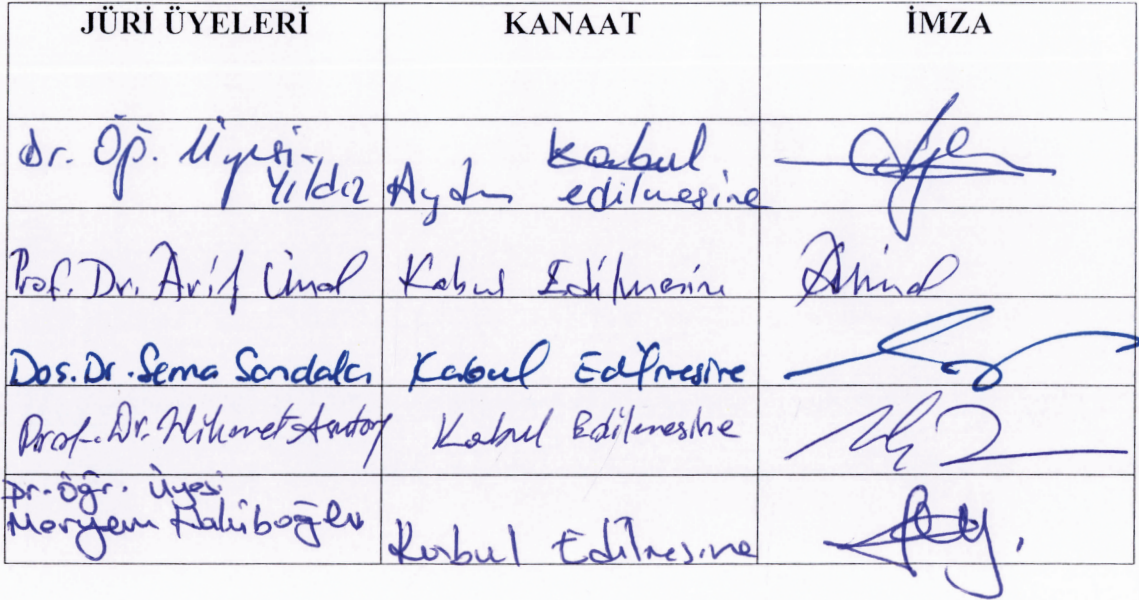 JÜRİ ÜYELERİ KANAAT İMZA
Dr. Öğ. Üyesi Kabul
Yıldız Aydın edilmesine
Prof. Dr. Arif Ünal Kabul Edilmesine
Dos. Dr. Sema Sandalcı Kabul Edilmesine
Prof. Dr. Hikmet Kabul Edilmesine
Dr. Öğr. Üyesi
Meryem Kabul Edilmesine